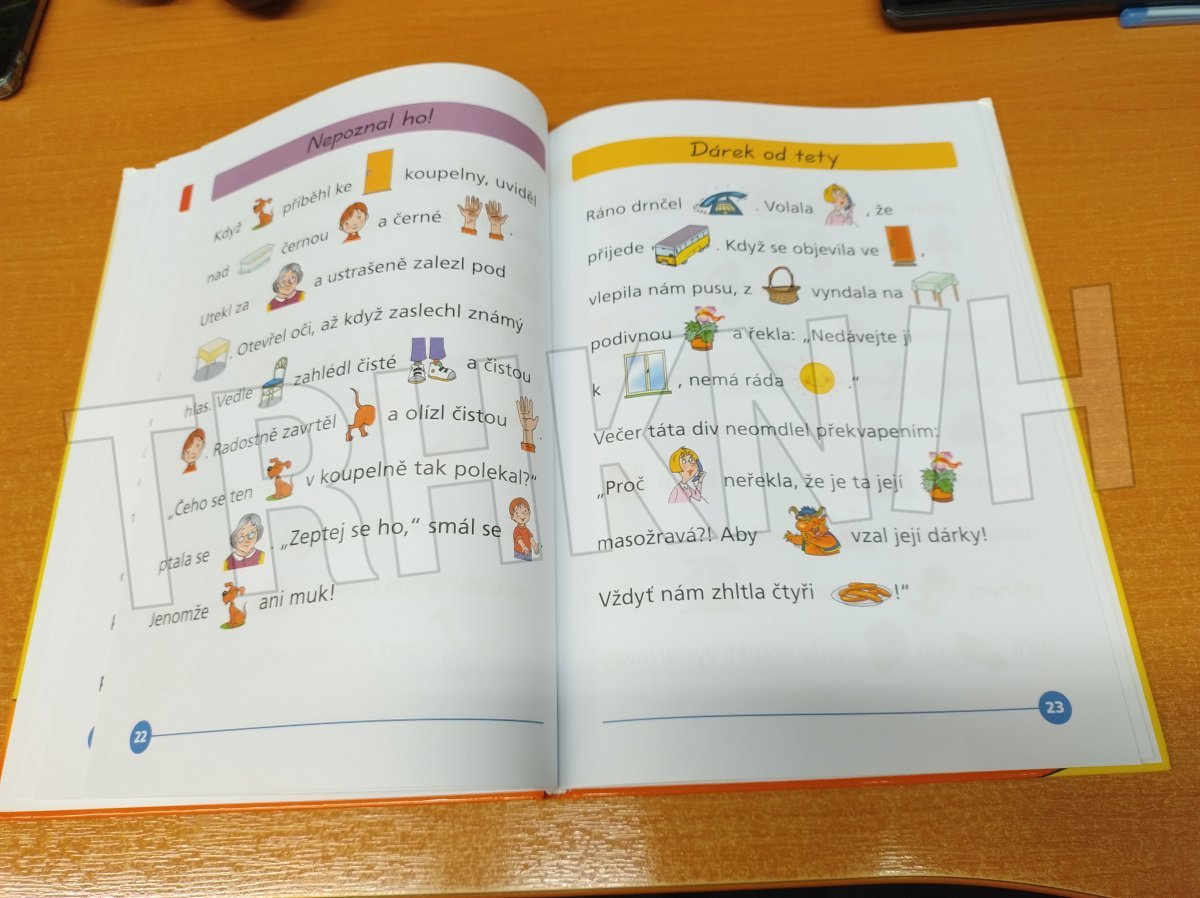 Nepoznal ho!
Když přiběhl ke koupelny, uviděl
nad černou a černé .
Utekl za a ustrašeně zalezl pod
. Otevřel oči, až když zaslechl známý
hlas. Vedle zahlédl čisté a čistou
. Radostně zavrtěl a olízl čistou .
„Čeho se ten v koupelně tak polekal?“
ptala se . „Zeptej se ho,“ smál se
Jenomže ani muk!
22
Dárek od tety
Ráno drnčel . Volala , že
přijede . Když se objevila ve ,
vlepila nám pusu, z vyndala na
podivnou a řekla: „Nedávejte ji
k , nemá ráda .“
Večer táta div neomdlel překvapením:
„Proč neřekla, že je ta její
masožravá?! Aby vzal její dárky!
Vždyť nám zhltla čtyři !“
23
TRHKNIH